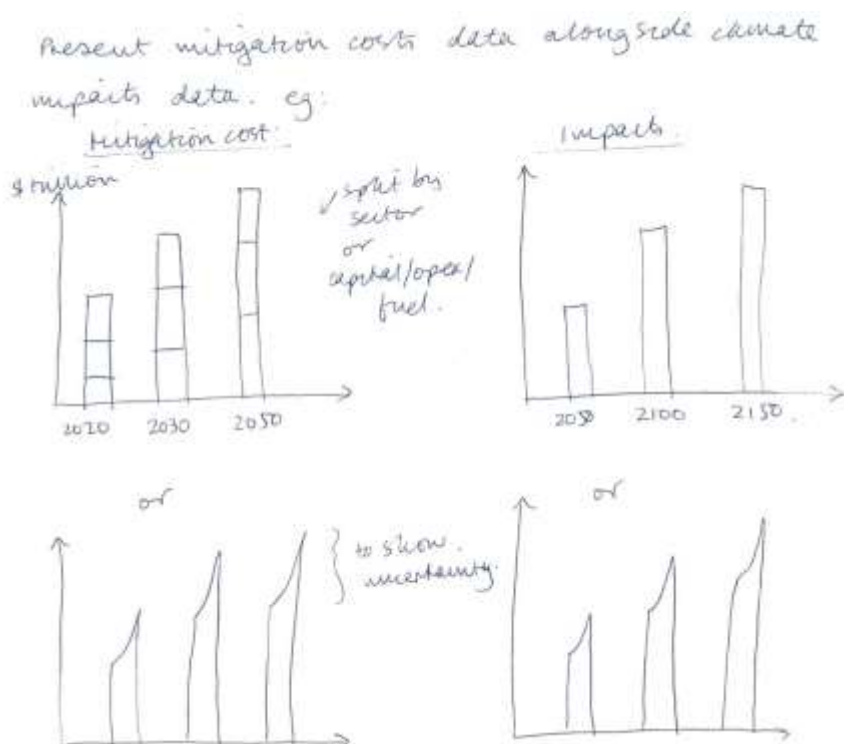 Present mitigation costs data alongside climate
impacts data. eg:
Mitigation cost.
$ trillion
split by
sector
or
capital/opex/
fuel.
2020 2030 2050
Impacts
2050 2100 2150.
or
to show
uncertainty.
or